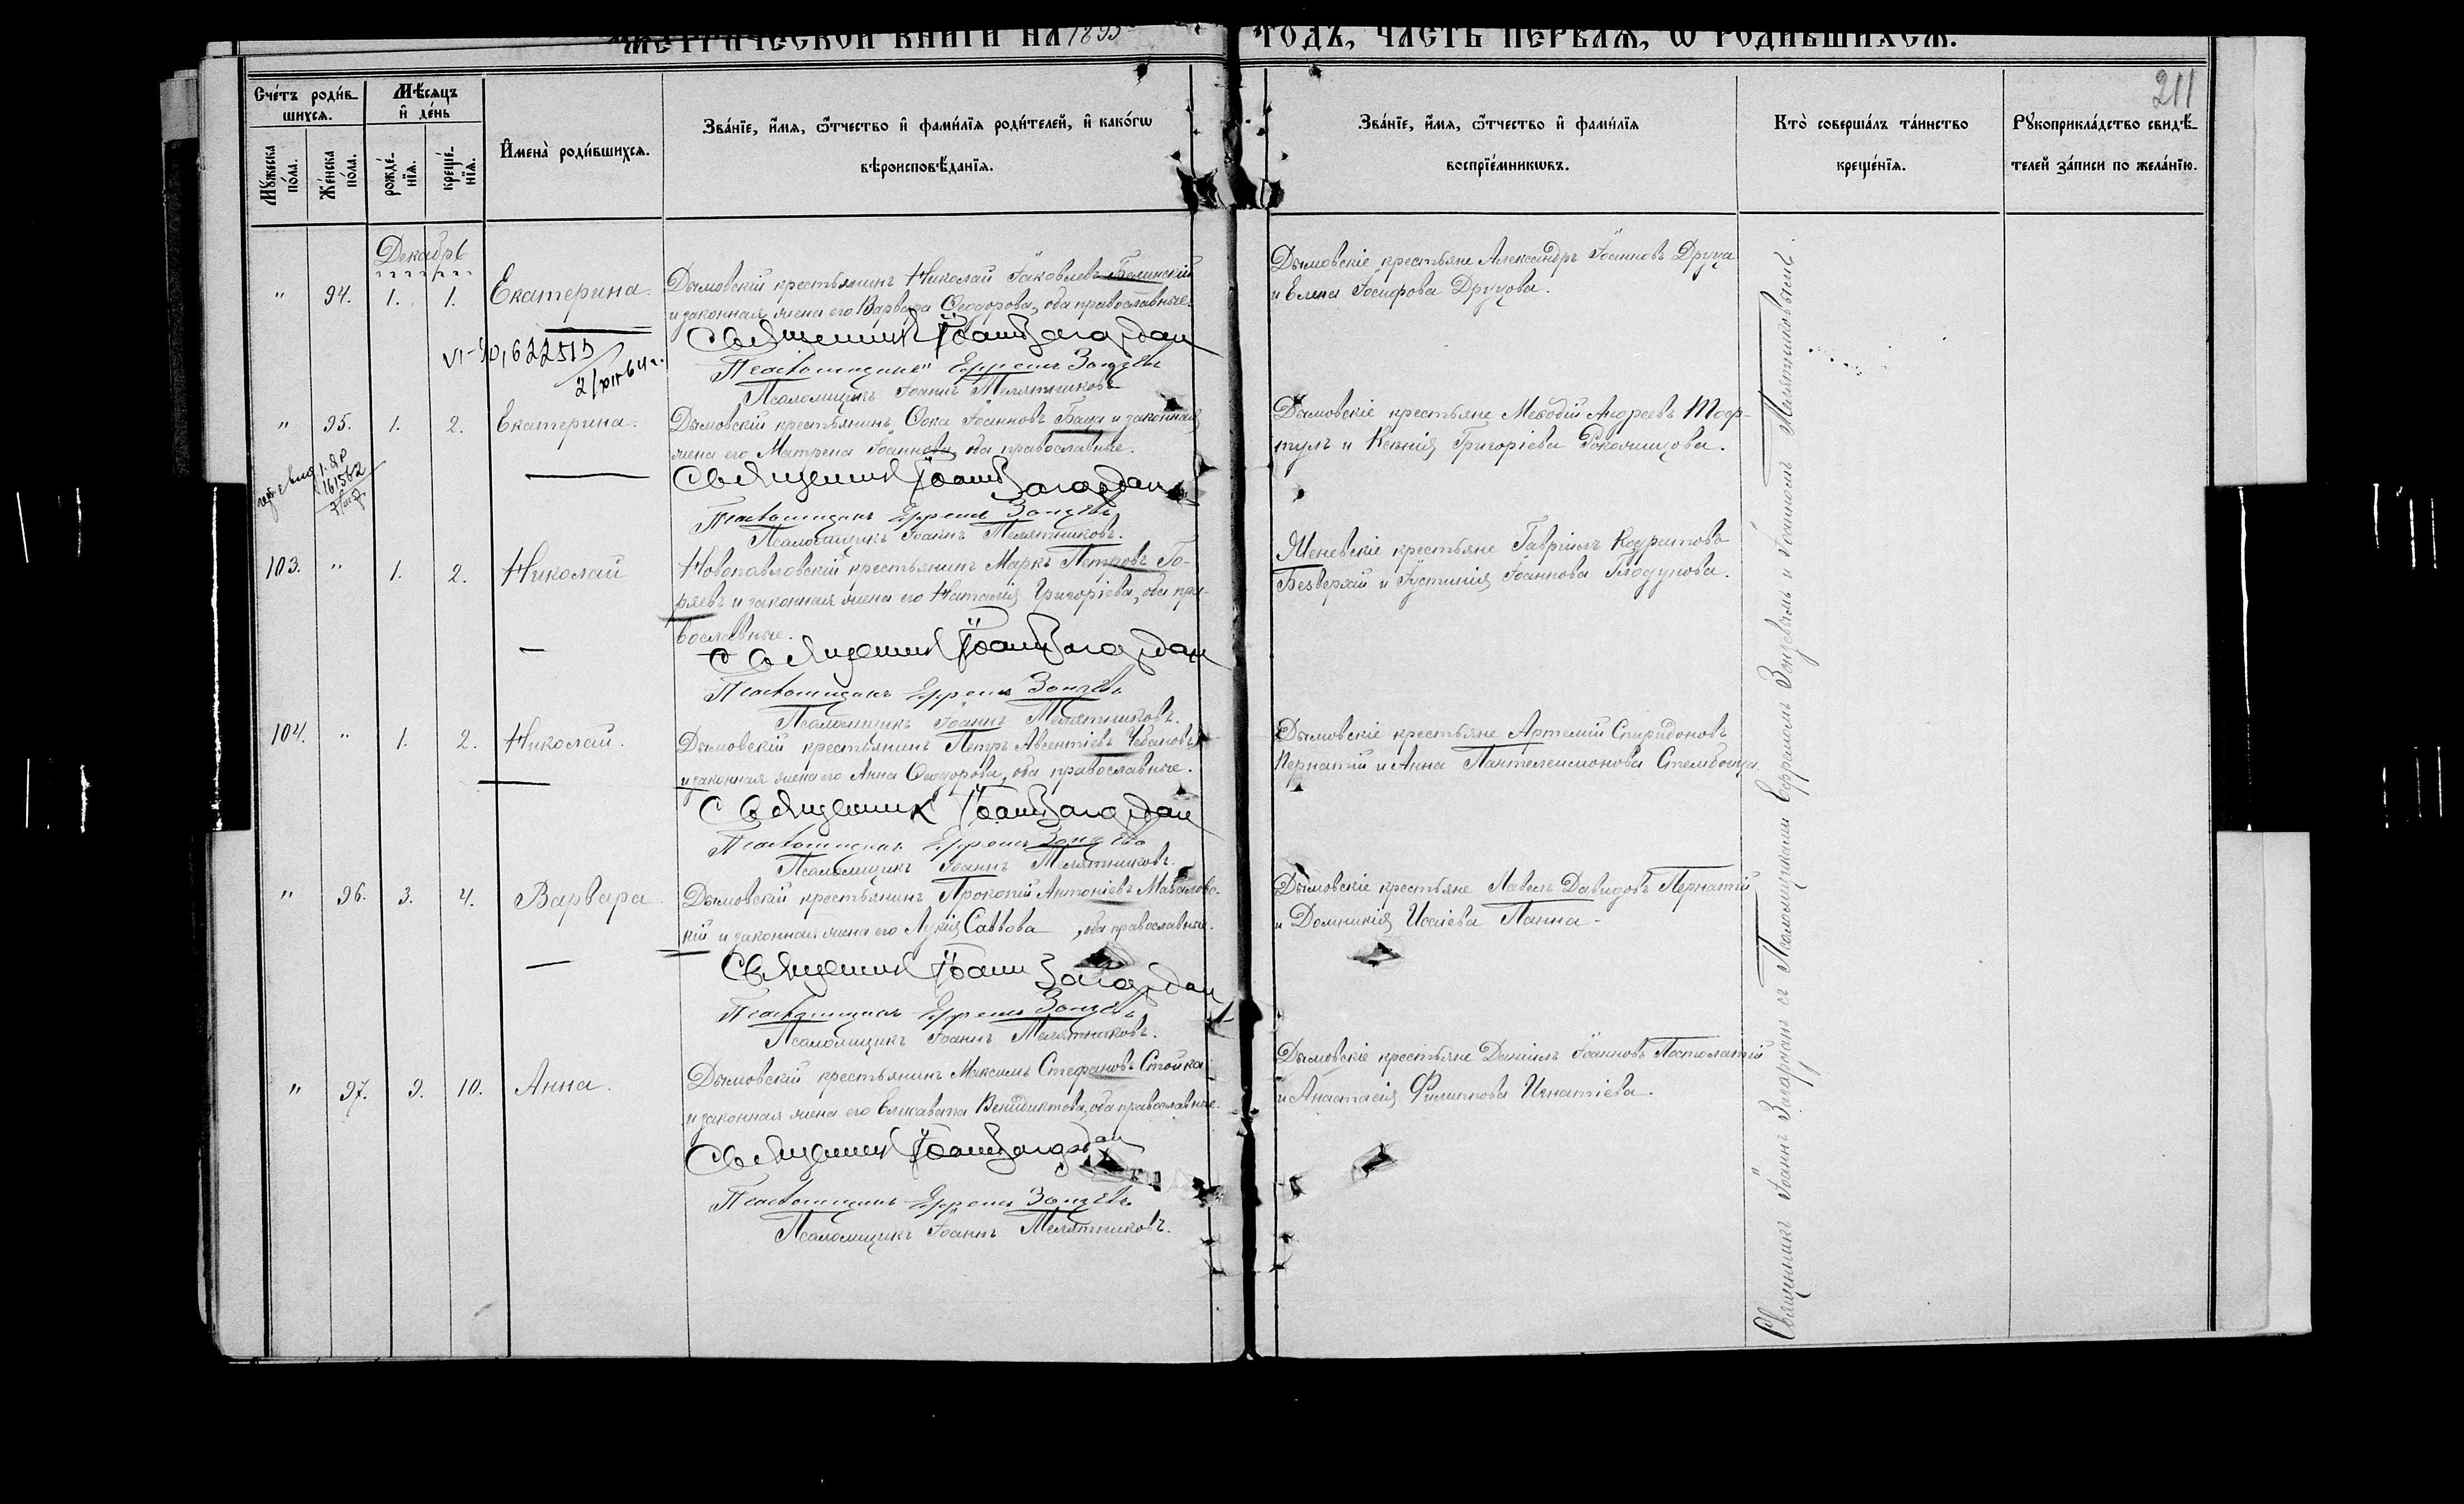 МЕТРИЧЕСКОЙ КНИГИ НА 1895
ГОДЪ, ЧАСТЬ ПЕРВАЯ, Ѡ РОДИВШИХСЯ.
211
Счétъ родив-
шихся.
Мѣсяцъ
и день
Мужеска
пола.
Женска
пола.
рожде-
нія.
креще-
нія.
Имена родившихся.
Званіе, имя, ѿтчество и фамилія родителей, и какогѡ
вѣроисповѣданія.
Званіе, имя, ѿтчество и фамилія
воспріемникѡвъ.
Кто совершалъ таинство
крещенія.
Рукоприкладство свидѣ-
телей записи по желанію.
Декабрь
" 94. 1. 1. Екатерина.
Дымовскій крестьянинъ Николай Іаковлевъ Белинскій
и законная жена его Варвара Ѳеодорова, оба православные.
Священникъ Іоаннъ Загародан
Псаломщикъ Ефремъ Зондевъ
Псаломщикъ Іоаннъ Телятниковъ
Дымовскіе крестьяне Александръ Іоанновъ Друца
и Елена Іосифова Друцова.
" 95. 1. 2. Екатерина.
Дымовскій крестьянинъ Ѳока Іоанновъ Баца и законная
жена его Матрена Іоаннова, оба православные.
Священникъ Іоаннъ Загародан
Псаломщикъ Ефремъ Зондевъ
Псаломщикъ Іоаннъ Телятниковъ.
Дымовскіе крестьяне Меѳодій Андреевъ
и Ксенія Григоріева
161562
103. " 1. 2. Николай
Новопавловскій крестьянинъ Маркъ Петровъ Го-
ряевъ и законная жена его Наталія Григоріева, оба пра-
вославные.
Священникъ Іоаннъ Загародан
Псаломщикъ Ефремъ Зондевъ
Псаломщикъ Іоаннъ Телятниковъ.
крестьяне Гавріилъ Кодратовъ
Безверхій и Іустинія Іоаннова
104. " 1. 2. Николай.
Дымовскій крестьянинъ Петръ Авсентіевъ Чебановъ
и законная жена его Анна Ѳеодорова, оба православные.
Священникъ Іоаннъ Загародан
Псаломщикъ Ефремъ Зондевъ
Псаломщикъ Іоаннъ Телятниковъ.
Дымовскіе крестьяне Артемій Спиридоновъ
Пернатій и Анна Пантелеимонова
" 96. 3. 4. Варвара
Дымовскій крестьянинъ Прокопій Антоніевъ
кій и законная жена его Лукія Саввова, оба православные.
Священникъ Іоаннъ Загародан
Псаломщикъ Ефремъ Зондевъ
Псаломщикъ Іоаннъ Телятниковъ.
Дымовскіе крестьяне Павелъ Давидовъ Пернатій
и Домникія Исаіева Панна
" 97. 9. 10. Анна.
Дымовскій крестьянинъ Максимъ Стефановъ Стойка
и законная жена его Елисавета Венидиктова, оба православные.
Священникъ Іоаннъ Загародан
Псаломщикъ Ефремъ Зондевъ
Псаломщикъ Іоаннъ Телятниковъ.
Дымовскіе крестьяне Даніилъ Іоанновъ Постолатій
и Анастасія Филиппова Игнатіева.
Священникъ Іоаннъ Загародан съ Псаломщиками Ефремомъ Зондевымъ и Іоанномъ Телятниковымъ.